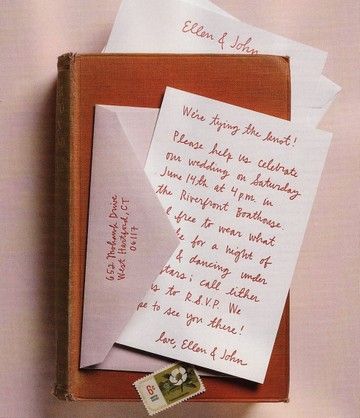 Ellen & John
We're tying the knot!
Please help us celebrate
our wedding on Saturday
June 14th at 4 p.m. in
the Riverfront Boathouse.
l free to wear what
le for a night of
& dancing under
stars; call either
us to R.S.V.P. We
pe to see you there!
love, Ellen & John
652 Mohawk Drive
West Hartford, CT
06117
6c